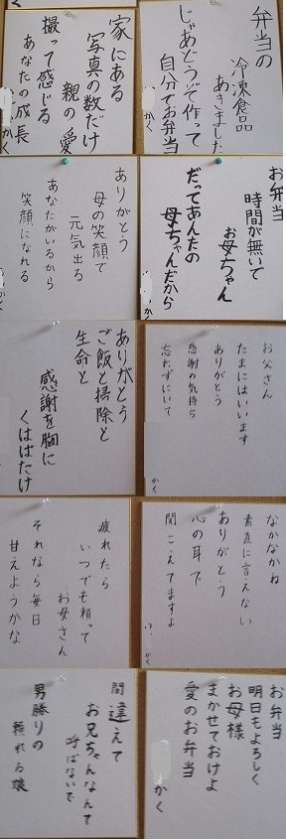 弁当の
冷凍食品
あきました
じゃあどうぞ作って
自分でお弁当
家にある
写真の数だけ
親の愛
撮って感じる
あなたの成長
かく
お弁当
時間が無いて
お母ちゃん
だってあんたの
母ちゃんだから
ありがとう
母の笑顔で
元気出る
あなたがいるから
笑顔になれる
お父さん
たまにはいいます
ありがとう
感謝の気持ち
忘れずにいて
かく
ありがとう
ご飯と掃除と
生命と
感謝を胸に
くははたけ
なかなかね
素直に言えない
ありがとう
心の耳で
聞こえてますよ
かく
疲れたら
いつでも頼って
お母さん
それなら毎日
甘えようかな
お弁当
明日もよろしく
お母様
まかせておけよ
愛のお弁当
かく
間違えて
お兄ちゃんなんて
呼ばないで
男勝りの
頼れる娘